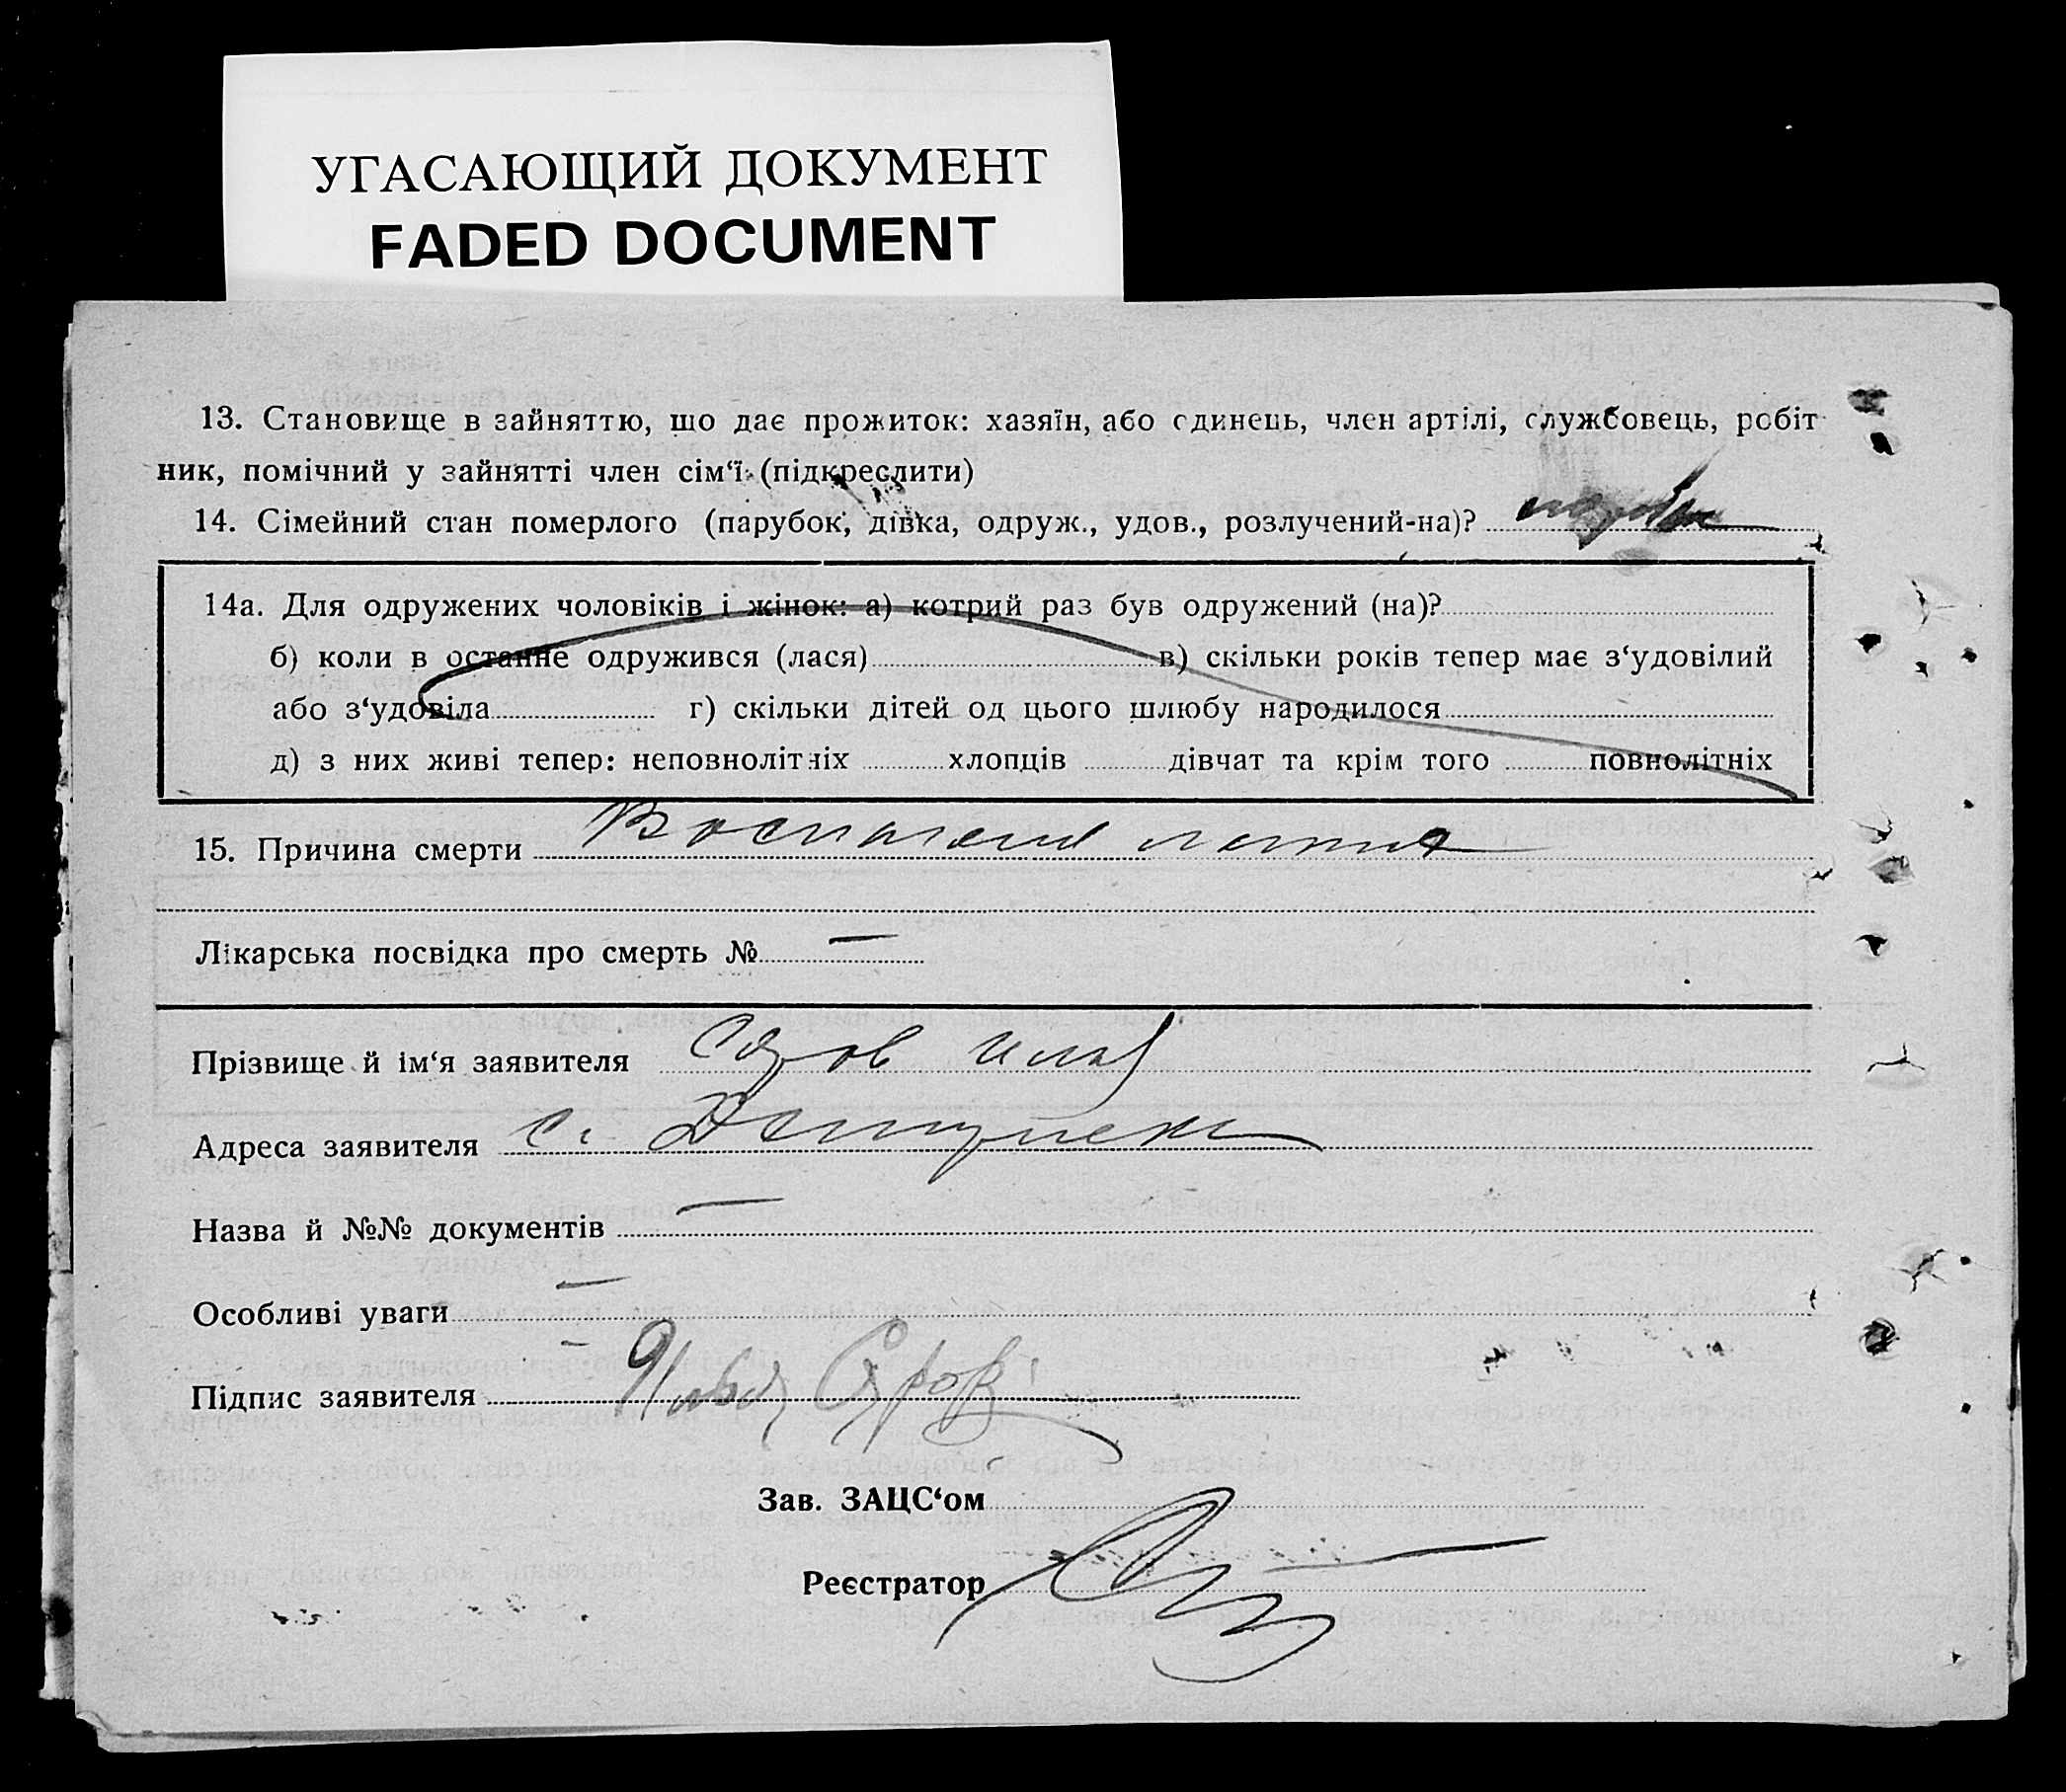 УГАСАЮЩИЙ ДОКУМЕНТ
FADED DOCUMENT
13. Становище в зайняттю, що дає прожиток: хазяїн, або єдинець, член артілі, службовець, робіт
ник, помічний у зайнятті член сім‘ї (підкреслити)
14. Сімейний стан померлого (парубок, дівка, одруж., удов., розлучений-на)?
14а. Для одружених чоловіків і жінок: а) котрий раз був одружений (на)?
б) коли в останнє одружився (лася) в) скільки років тепер має з‘удовілий
або з‘удовіла г) скільки дітей од цього шлюбу народилося
д) з них живі тепер: неповнолітніх хлопців дівчат та крім того повнолітніх
15. Причина смерти
Лікарська посвідка про смерть № —
Прізвище й ім‘я заявителя
Адреса заявителя с.
Назва й №№ документів —
Особливі уваги —
Підпис заявителя
Зав. ЗАЦС‘ом
Реєстратор